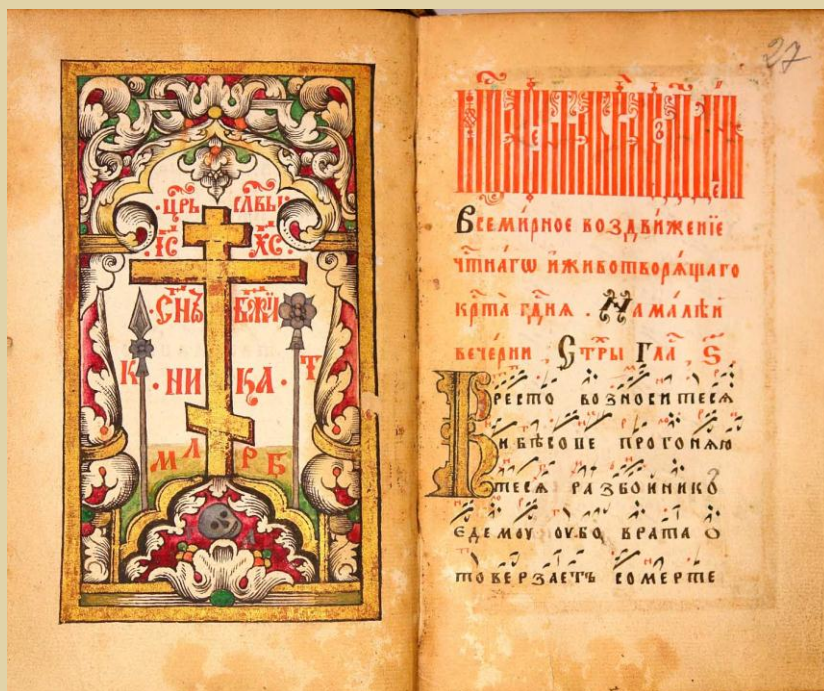 ЦР҃Ь СЛ҃ВЫ
ІС҃ ХС҃
СН҃Ъ БЖ҃ІИ
К Т
НИ КА
М Л Р Б
27
Всеми́рное воздви́женїе
чтⷭ҇на́гѡ иживотворѧ́щаго
крⷭ҇та̀ гдⷭ҇нѧ . Нама́лѣй
вече́рни Стⷯры Глаⷭ҇ ѕ҃
Кресто возноситесѧ
ибѣсове прогонѧю
тесѧ разбойнико
едемоу оубо врата ѿ
товерзаетъ сомерте